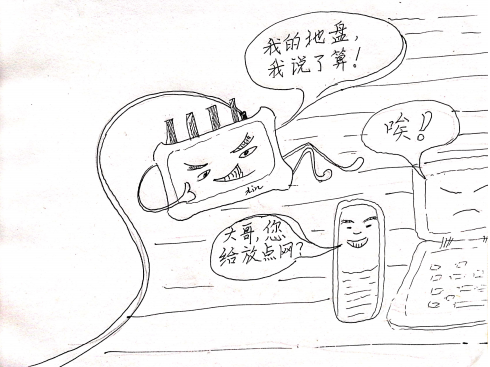 我的地盘,
我说了算!
唉!
大哥,您
给放点网?